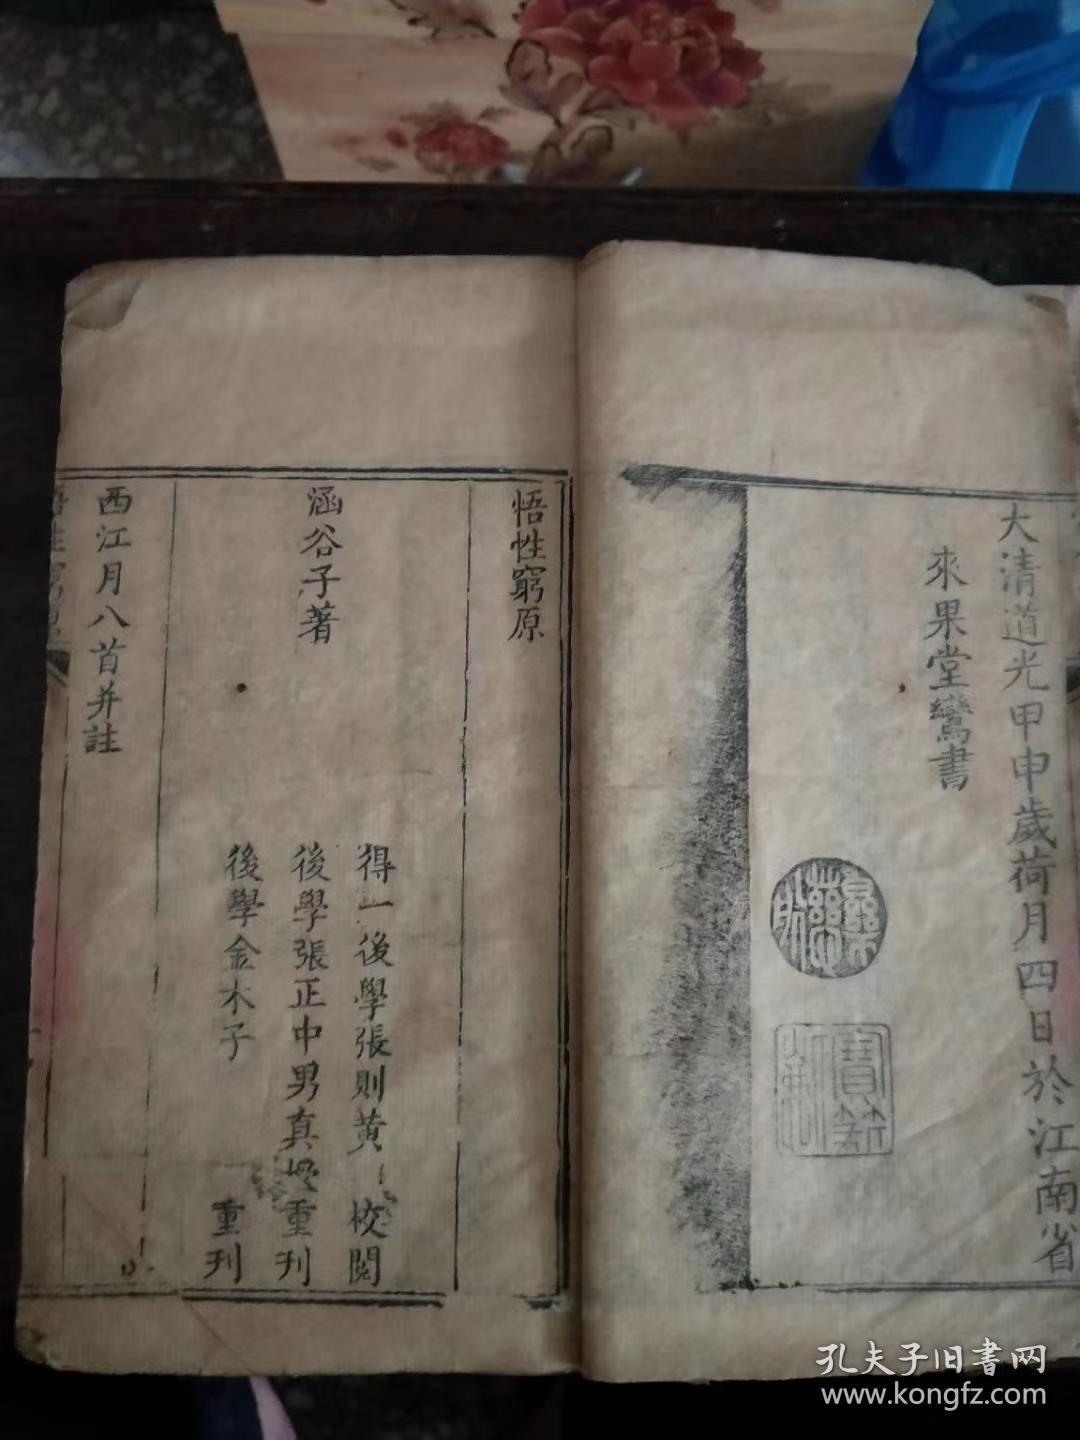 大清道光甲申歲荷月四日於江南省
來果堂鸞書
悟性窮原
涵谷子著
得一後學張則黃 校閱
後學張正中男真 重刊
後學金木子 重刊
西江月八首并註
孔夫子旧書网
www.kongfz.com